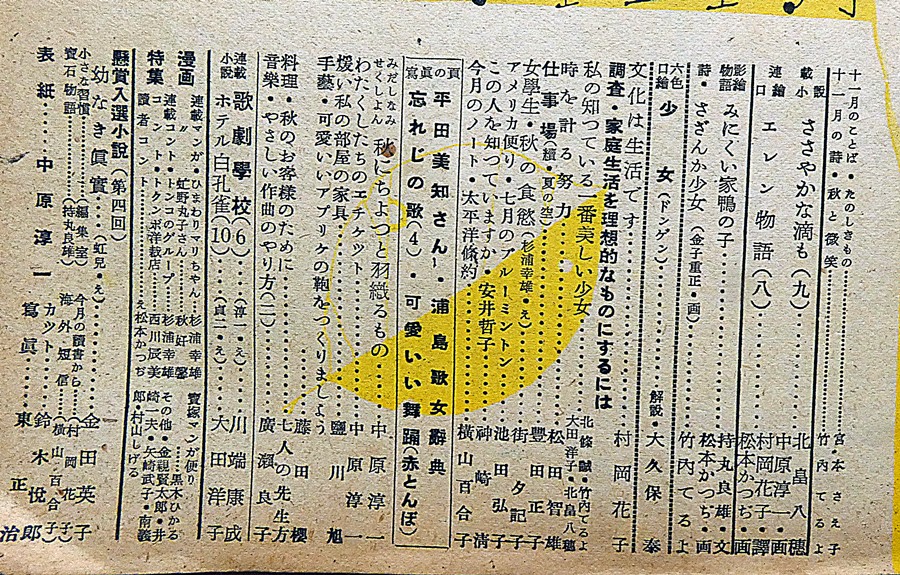 十一月のことば・たのしきもの……宮本さえ子
十一月の詩・秋と微笑……竹内てるよ
連載小説 ささやかな滴も（九）……北畠八穂
口繪 エレン物語（八） 中原淳一・画 村岡花子・譯
影繪物語 みにくい家鴨の子 松本かつぢ・画 持丸良雄・文
詩・さざんか少女（金子重正・画） 松本かつぢ・画 竹内てるよ
六色口繪 少女（ドンゲン） 解説・大久保泰
文化は生活です……村岡花子
調査・家庭生活を理想的なものにするには
私の知つている一番美しい少女 北條誠・竹内てるよ 大田洋子・北畠八穂
時を計る努力……松田智雄
仕事場（檀・夏の空）……豊田正子
女學生・秋の食慾（杉浦幸雄・え）……街夕記子
アメリカ便り・七月のブルーミントン……池田弘子
この人を知つていますか・安井哲子……神崎清
今月のノート・太平洋條約……横山百合子
寫眞の頁 平田美知さん・浦島歌女辭典
忘れじの歌（4）・可愛いい舞踊（赤とんぼ）
みだしなみ 秋にちよつと羽織るもの……中原淳一
せくしよん わたくしたちのエチケット……中原淳一
煖い私の部屋の家具……鹽川旭
手藝・可愛いいアプリケの鞄をつくりましよう……藤田櫻
料理・秋のお客様のために……七人の先生方
音樂・やさしい作曲のやり方（二）……廣瀬良子
連載小説 歌劇學校（6）（淳一・え） 川端康成
ホテル白孔雀（10）（貞二・え） 大田洋子
漫画 連載マンガ・ひまわりマリちゃん 杉浦幸雄 寶塚マンガ便り
〃 虹野丸子さん 秋好馨 黒木ひかる
特集 連載コント・トンコのグループ 杉浦幸雄 その他・金親賢太郎・井
コント・トクン洋裁店 西川辰美 崎一夫・矢崎武子・南義
讀者コント え松本かつぢ 郎村山しげる
懸賞入選小説（第四回）
幼なき眞實……（虹兒・え）……金田英子
小さな習慣……（編集室） 今月の讀書から……（村岡花子）
寶石物語……（持丸良雄） 海外短信……（横山百合子）
表紙……中原淳一 カット……鈴木悅郎
寫眞……東正治